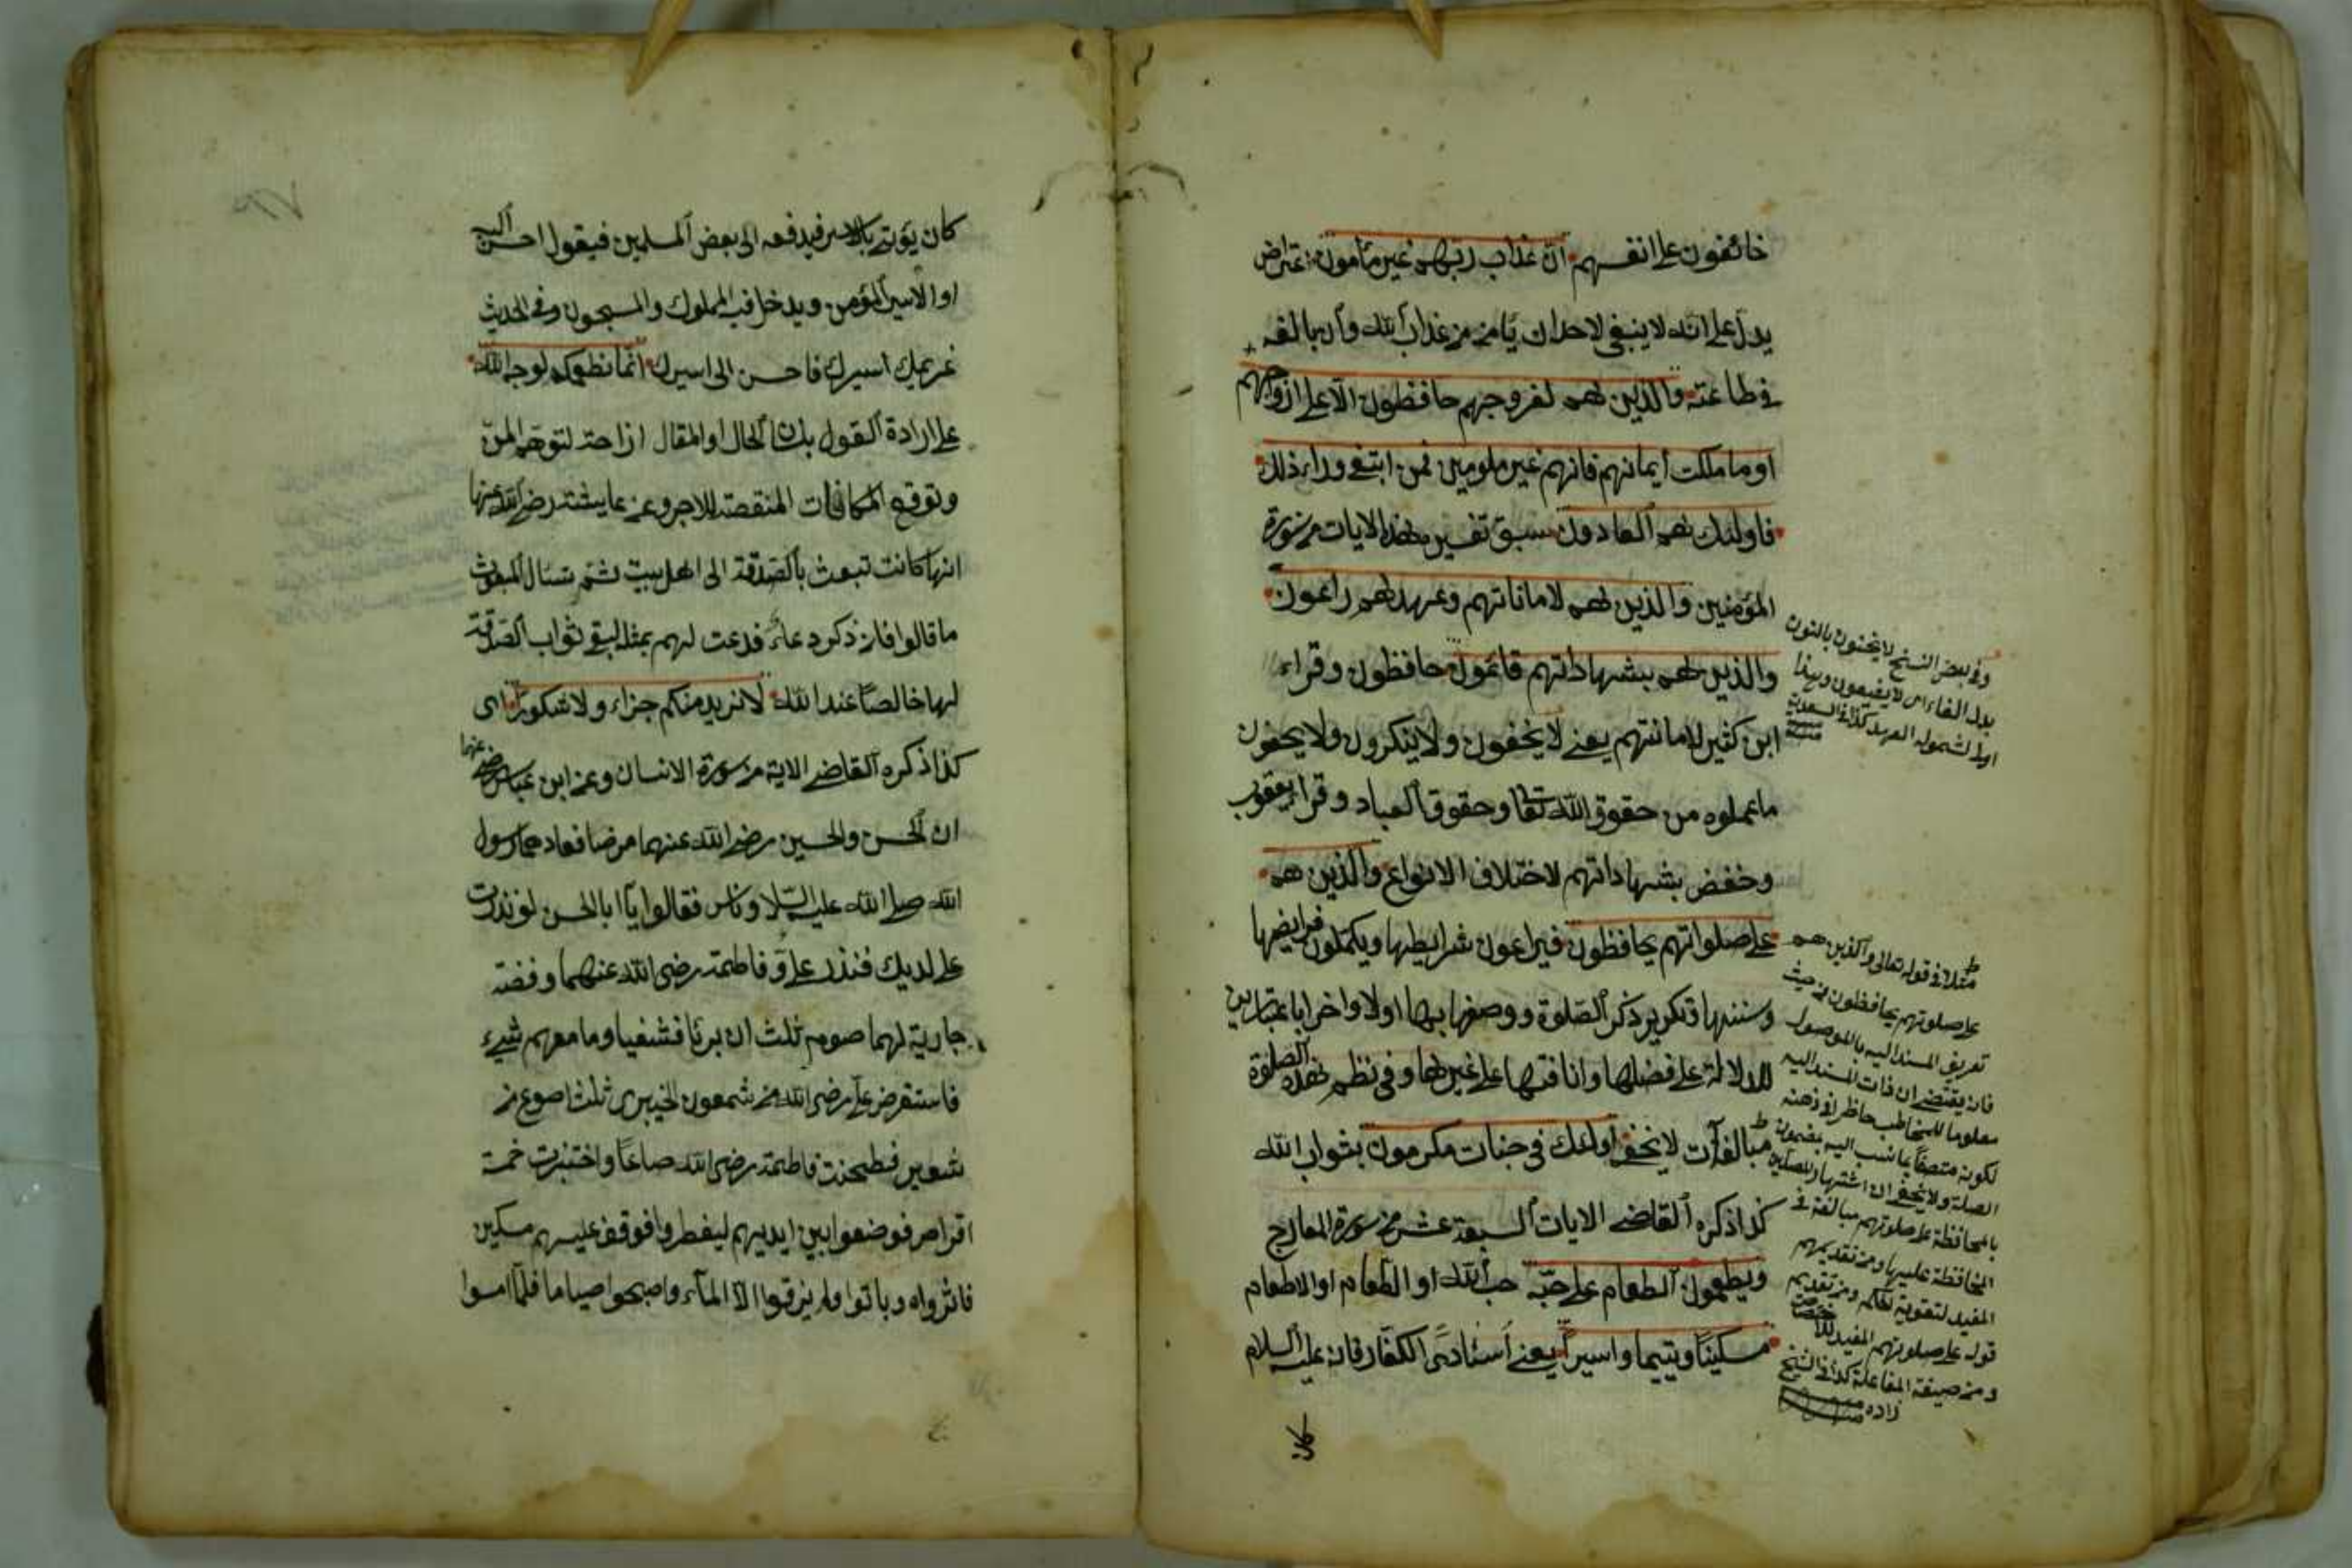 خائفون على انفسهم ان عذاب ربهم غير مأمون اعتراض
يدل على انه لا ينبغي لاحد ان يأمن من عذاب الله وان بالغ
في طاعته والذين هم لفروجهم حافظون الا على ازواجهم
او ما ملكت ايمانهم فانهم غير ملومين فمن ابتغى وراء ذلك
فاولئك هم العادون سبق تفسير هذه الايات من سورة
المؤمنين والذين هم لاماناتهم وعهدهم راعون
والذين هم بشهاداتهم قائمون حافظون وقراء
ابن كثير لامانتهم يعني لا يخفون ولا ينكرون ولا يخفون
ما عملوه من حقوق الله تعالى وحقوق العباد وقرا يعقوب
وحفص بشهاداتهم لاختلاف الانواع والذين هم
على صلواتهم يحافظون فيراعون شرايطها ويكملون فرايضها
وسننها وتكرير ذكر الصلوة ووصفهم بها اولا واخرا باعتبارين
للدلالة على فضلها وانافتها على غيرها وفي نظم هذه الصلوة
مبالغات لا تخفى اولئك في جنات مكرمون بثواب الله
كذا ذكره القاضي الايات السبعة عشر من سورة المعارج
ويطعمون الطعام على حبه حب الله او الطعام او الاطعام
مسكينا ويتيما واسيرا يعني اسارى الكفار فانه عليه السلام
كان
وفي بعض النسخ لا يخنون بالنون
بدل الفاء اي لا يضيعون وهذا
اولى لشموله العهد كذا في السعدية
مثلا في قوله تعالى والذين هم
على صلوتهم يحافظون من حيث
تعريف المسند اليه بالموصول
فانه يقتضي ان ذات المسند اليه
معلوما للمخاطب حاظر في ذهنه
لكونه متصفا بما نسب اليه بمضمون
الصلة ولا يخفى ان اشتهار المصلين
بالمحافظة على صلوتهم مبالغة في
المحافظة عليها ومن تقديم هم
المفيد لتقوية الحكم ومن تقديم
قوله على صلوتهم المفيد للاختصاص
ومن صيغة المفاعلة كذا في الشيخ
زاده
كان يؤتى بالاسير فيدفعه الى بعض المسلمين فيقول احسن اليه
او الاسير المؤمن ويدخل فيه المملوك والمسجون وفي الحديث
غريمك اسيرك فاحسن الى اسيرك انما نطعمكم لوجه الله
على ارادة القول بلسان الحال او المقال ازاحة لتوهم المن
وتوقع المكافات المنقصة للاجر وعن عايشة رضي الله عنها
انها كانت تبعث بالصدقة الى اهل بيت ثم تسأل المبعوث
ما قالوا فان ذكر دعاء فدعت لهم بمثله ليبقى ثواب الصدقة
لها خالصا عند الله لا نريد منكم جزاء ولا شكورا اى
كذا ذكره القاضي الاية من سورة الانسان وعن ابن عباس رضي عنهما
ان الحسن والحسين رضي الله عنهما مرضا فعادهما رسول
الله صلى الله عليه السلام وناس فقالوا يا ابا الحسن لو نذرت
على ولديك فنذر علي وفاطمة رضي الله عنهما وفضة
جارية لهما صوم ثلث ان برئا فشفيا وما معهم شيء
فاستقرض علي رضي الله من شمعون الخيبرى ثلث اصوع من
شعير فطحنت فاطمة رضي الله صاعا واختبزت خمسة
اقراص فوضعوا بين ايديهم ليفطروا فوقف عليهم مسكين
فاثروه وباتوا ولم يذوقوا الا الماء واصبحوا صياما فلما امسوا